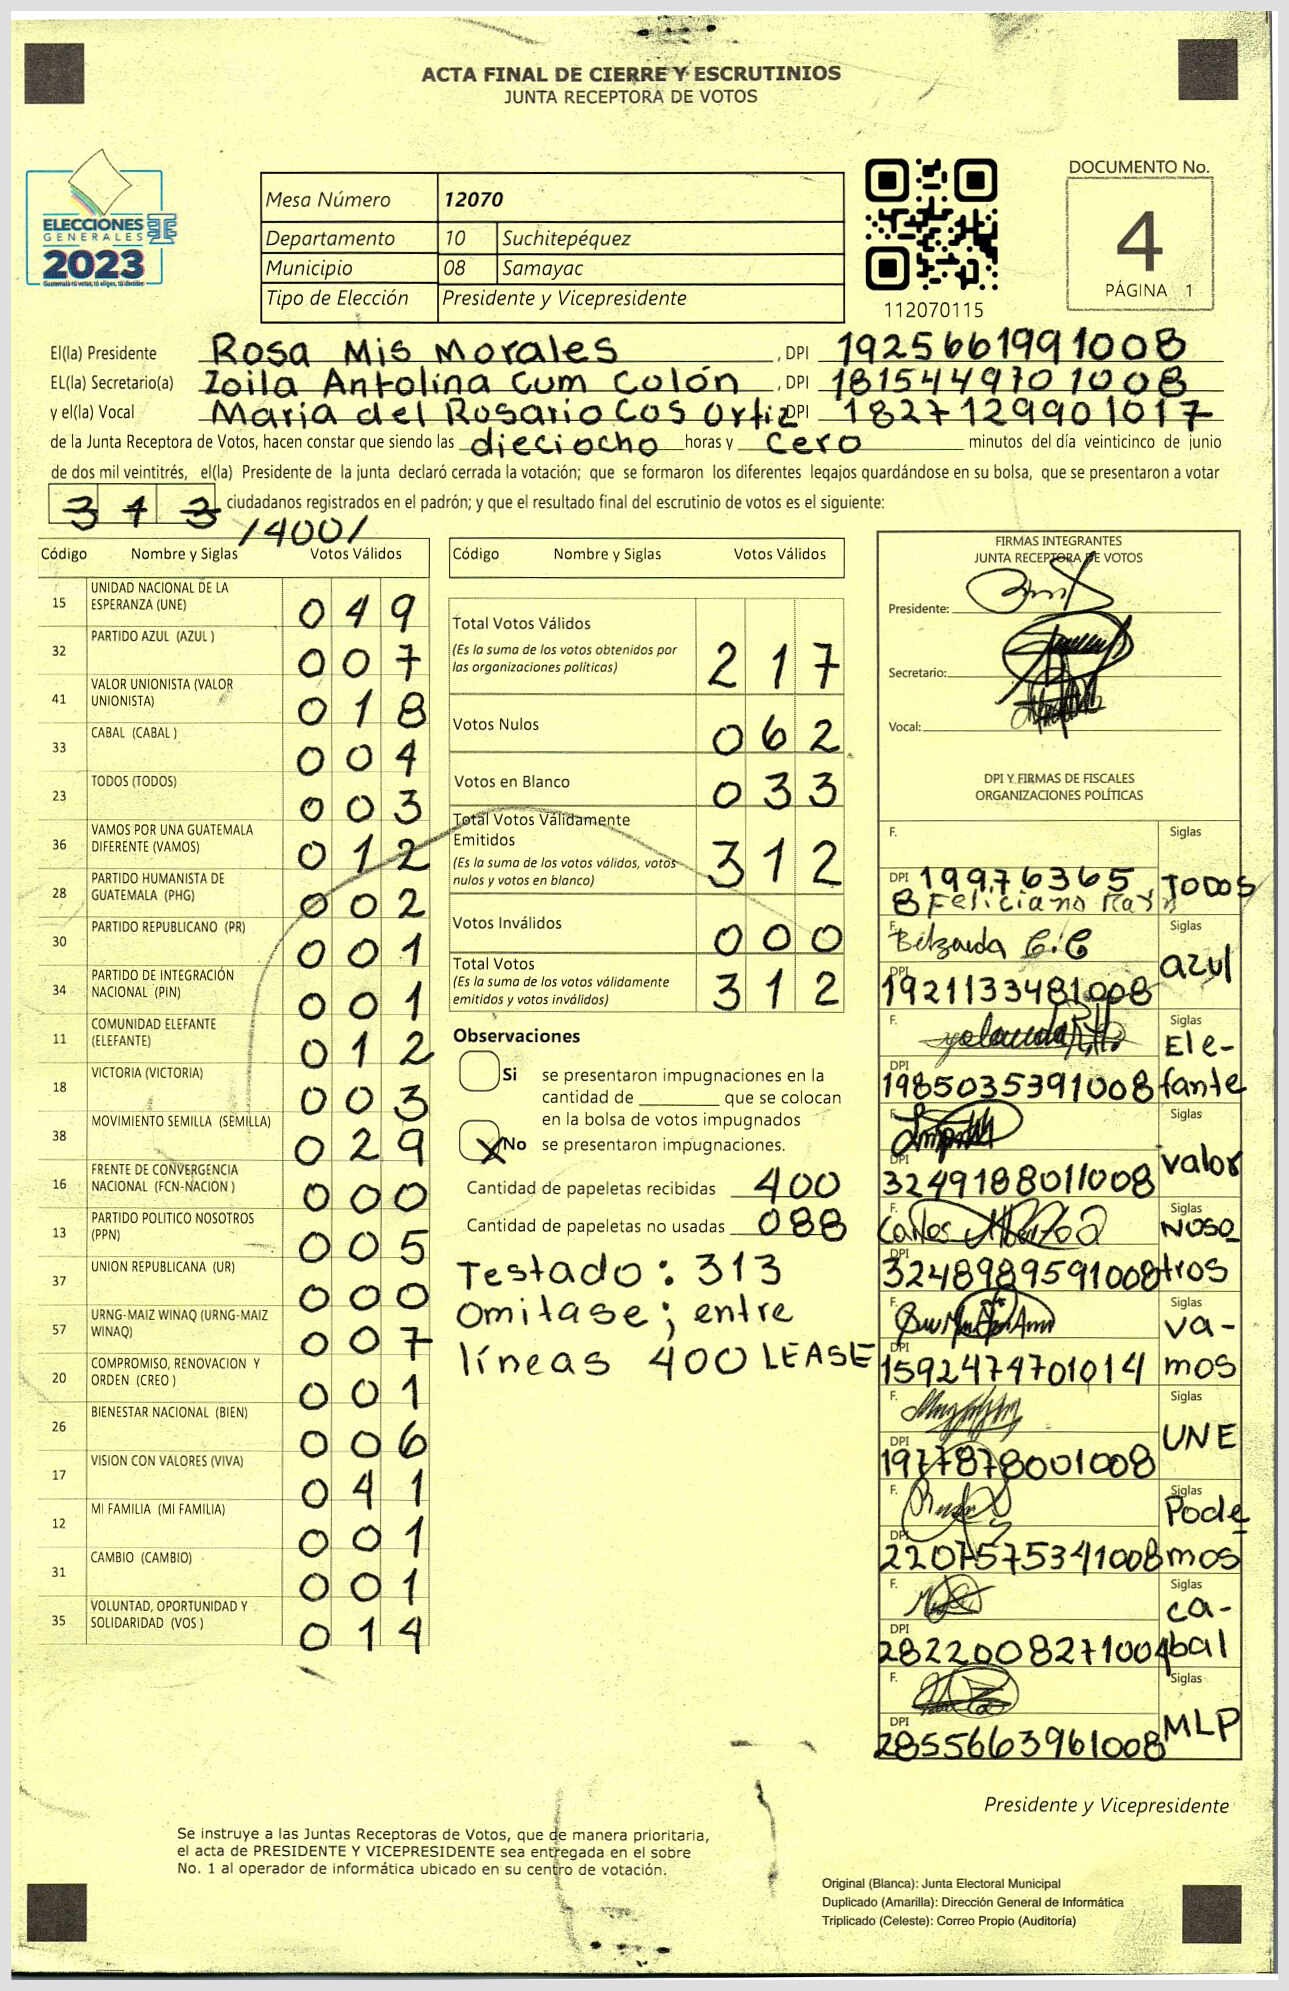 ACTA FINAL DE CIERRE Y ESCRUTINIOS
JUNTA RECEPTORA DE VOTOS
ELECCIONES
GENERALES
2023
Guatemala tú votas, tú eliges, tú decides
Mesa Número 12070
Departamento 10 Suchitepéquez
Municipio 08 Samayac
Tipo de Elección Presidente y Vicepresidente
112070115
DOCUMENTO No.
4
PÁGINA 1
El(la) Presidente Rosa Mis Morales , DPI 1925661991008
EL(la) Secretario(a) Zoila Antolina Cum Colón , DPI 1815449701008
y el(la) Vocal Maria del Rosario Cos Ortiz DPI 1827129901017
de la Junta Receptora de Votos, hacen constar que siendo las dieciocho horas y cero minutos del día veinticinco de junio
de dos mil veintitrés, el(la) Presidente de la junta declaró cerrada la votación; que se formaron los diferentes legajos quardándose en su bolsa, que se presentaron a votar
313 ciudadanos registrados en el padrón; y que el resultado final del escrutinio de votos es el siguiente:
/400/
Código Nombre y Siglas Votos Válidos
15 UNIDAD NACIONAL DE LA ESPERANZA (UNE) 049
32 PARTIDO AZUL (AZUL ) 007
41 VALOR UNIONISTA (VALOR UNIONISTA) 018
33 CABAL (CABAL ) 004
23 TODOS (TODOS) 003
36 VAMOS POR UNA GUATEMALA DIFERENTE (VAMOS) 012
28 PARTIDO HUMANISTA DE GUATEMALA (PHG) 002
30 PARTIDO REPUBLICANO (PR) 001
34 PARTIDO DE INTEGRACIÓN NACIONAL (PIN) 001
11 COMUNIDAD ELEFANTE (ELEFANTE) 012
18 VICTORIA (VICTORIA) 003
38 MOVIMIENTO SEMILLA (SEMILLA) 029
16 FRENTE DE CONVERGENCIA NACIONAL (FCN-NACION ) 000
13 PARTIDO POLITICO NOSOTROS (PPN) 005
37 UNION REPUBLICANA (UR) 000
57 URNG-MAIZ WINAQ (URNG-MAIZ WINAQ) 007
20 COMPROMISO, RENOVACION Y ORDEN (CREO ) 001
26 BIENESTAR NACIONAL (BIEN) 006
17 VISION CON VALORES (VIVA) 041
12 MI FAMILIA (MI FAMILIA) 001
31 CAMBIO (CAMBIO) 001
35 VOLUNTAD, OPORTUNIDAD Y SOLIDARIDAD (VOS ) 014
Código Nombre y Siglas Votos Válidos
Total Votos Válidos 217
(Es la suma de los votos obtenidos por
las organizaciones políticas)
Votos Nulos 062
Votos en Blanco 033
Total Votos Válidamente
Emitidos 312
(Es la suma de los votos válidos, votos
nulos y votos en blanco)
Votos Inválidos 000
Total Votos 312
(Es la suma de los votos válidamente
emitidos y votos inválidos)
Observaciones
Si se presentaron impugnaciones en la
cantidad de ________ que se colocan
en la bolsa de votos impugnados
X No se presentaron impugnaciones.
Cantidad de papeletas recibidas 400
Cantidad de papeletas no usadas 088
Testado: 313
omitase; entre
líneas 400 LEASE
FIRMAS INTEGRANTES
JUNTA RECEPTORA DE VOTOS
Presidente:
Secretario:
Vocal:
DPI Y FIRMAS DE FISCALES
ORGANIZACIONES POLÍTICAS
F. Siglas
DPI 19976365 TODOS
8 Feliciano
F. Siglas
azul
DPI 1921133481008
F. Siglas
Ele-
DPI 1985035391008 fante
F. Siglas
valor
DPI 3249188011008
F. Carlos Siglas
NOSO
DPI 3248989591008 tros
F. Siglas
va-
DPI 1592474701014 mos
F. Siglas
UNE
DPI 1977878001008
F. Siglas
Pode
DPI 2207575341008 mos
F. Siglas
ca-
DPI 2822008271004 bal
F. Siglas
MLP
DPI 2855663961008
Presidente y Vicepresidente
Se instruye a las Juntas Receptoras de Votos, que de manera prioritaria,
el acta de PRESIDENTE Y VICEPRESIDENTE sea entregada en el sobre
No. 1 al operador de informática ubicado en su centro de votación.
Original (Blanca): Junta Electoral Municipal
Duplicado (Amarilla): Dirección General de Informática
Triplicado (Celeste): Correo Propio (Auditoría)